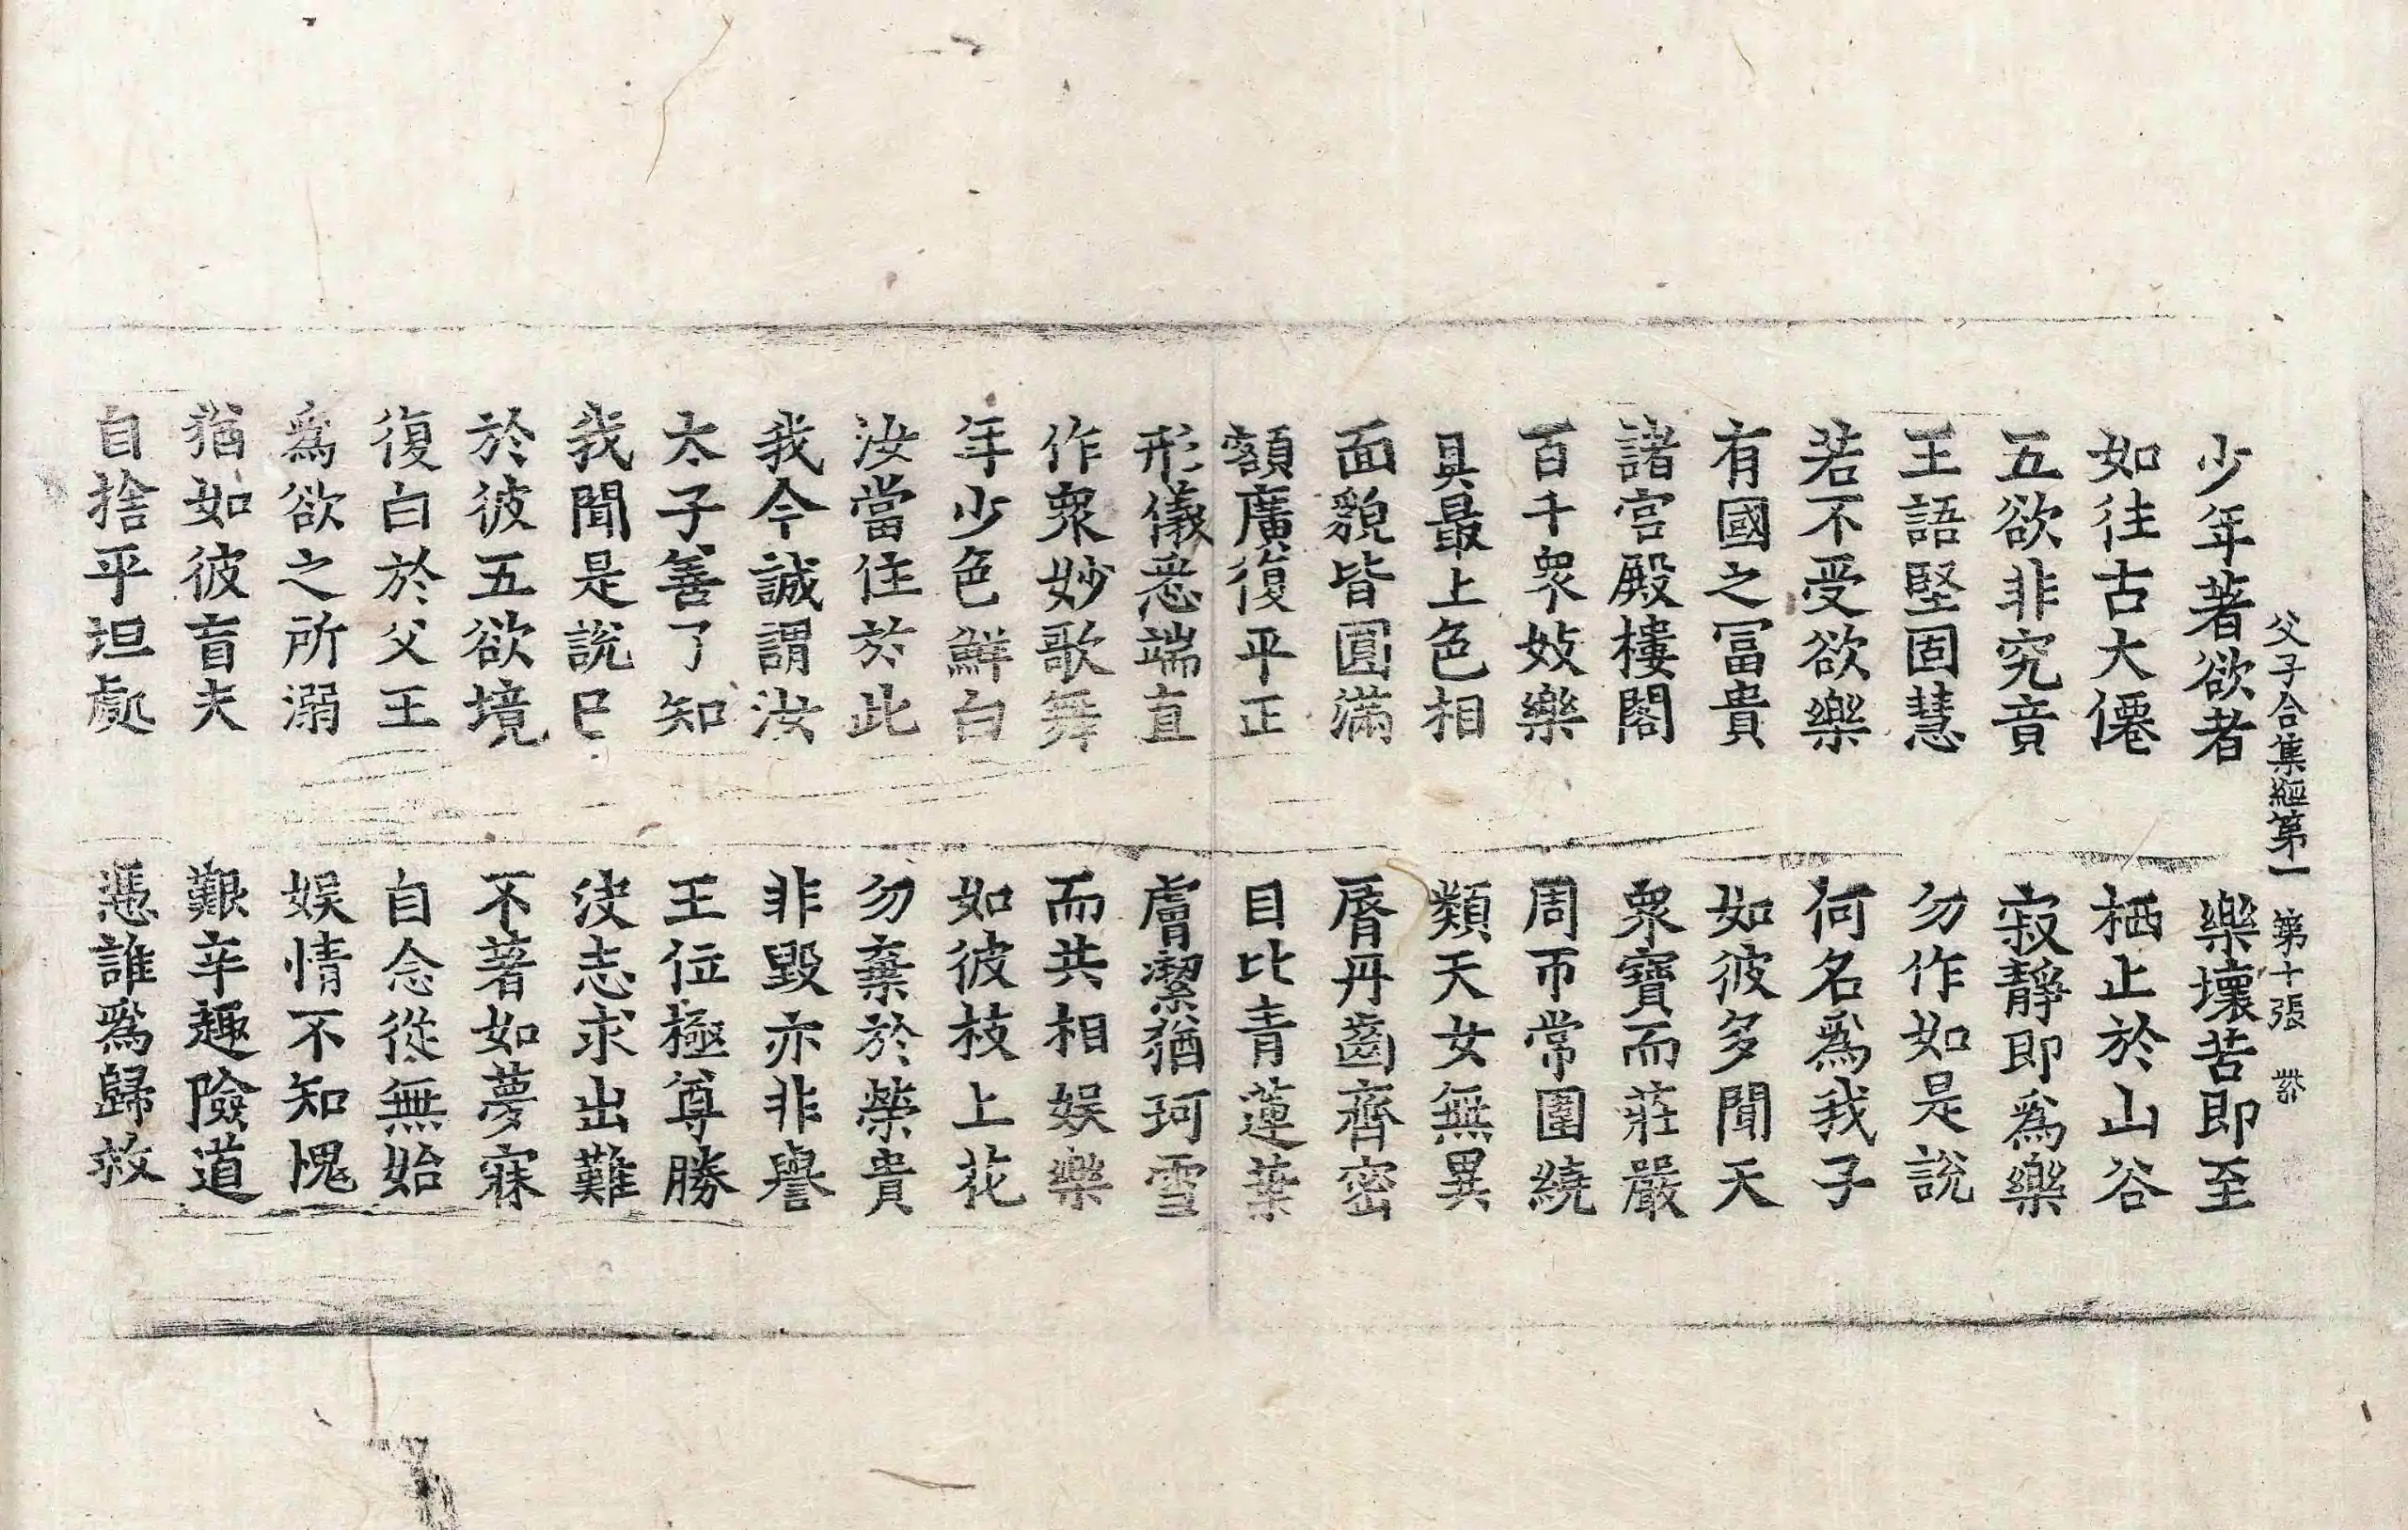 父子合集經第一 第十張
少年著欲者 樂壞苦即至
如往古大僊 栖止於山谷
五欲非究竟 寂靜即爲樂
王語堅固慧 勿作如是說
若不受欲樂 何名爲我子
有國之冨貴 如彼多聞天
諸宮殿樓閣 衆寶而莊嚴
百千衆妓樂 周帀常圍繞
具最上色相 類天女無異
面貌皆圓滿 脣丹齒齊密
額廣復平正 目比青蓮葉
形儀悉端直 膚潔猶珂雪
作衆妙歌舞 而共相娛樂
年少色鮮白 如彼枝上花
汝當住於此 勿棄於榮貴
我今誠謂汝 非毀亦非譽
太子善了知 王位極尊勝
我聞是說已 決志求出難
於彼五欲境 不著如夢寐
復白於父王 自念從無始
爲欲之所溺 娛情不知愧
猶如彼盲夫 艱辛趣險道
自捨平坦處 慿誰爲歸救